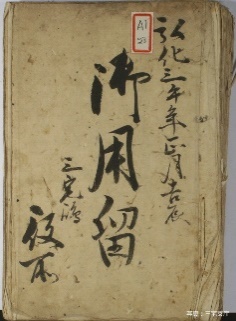 A1
弘化三午年正月吉辰
御用留
三宅嶋
役所